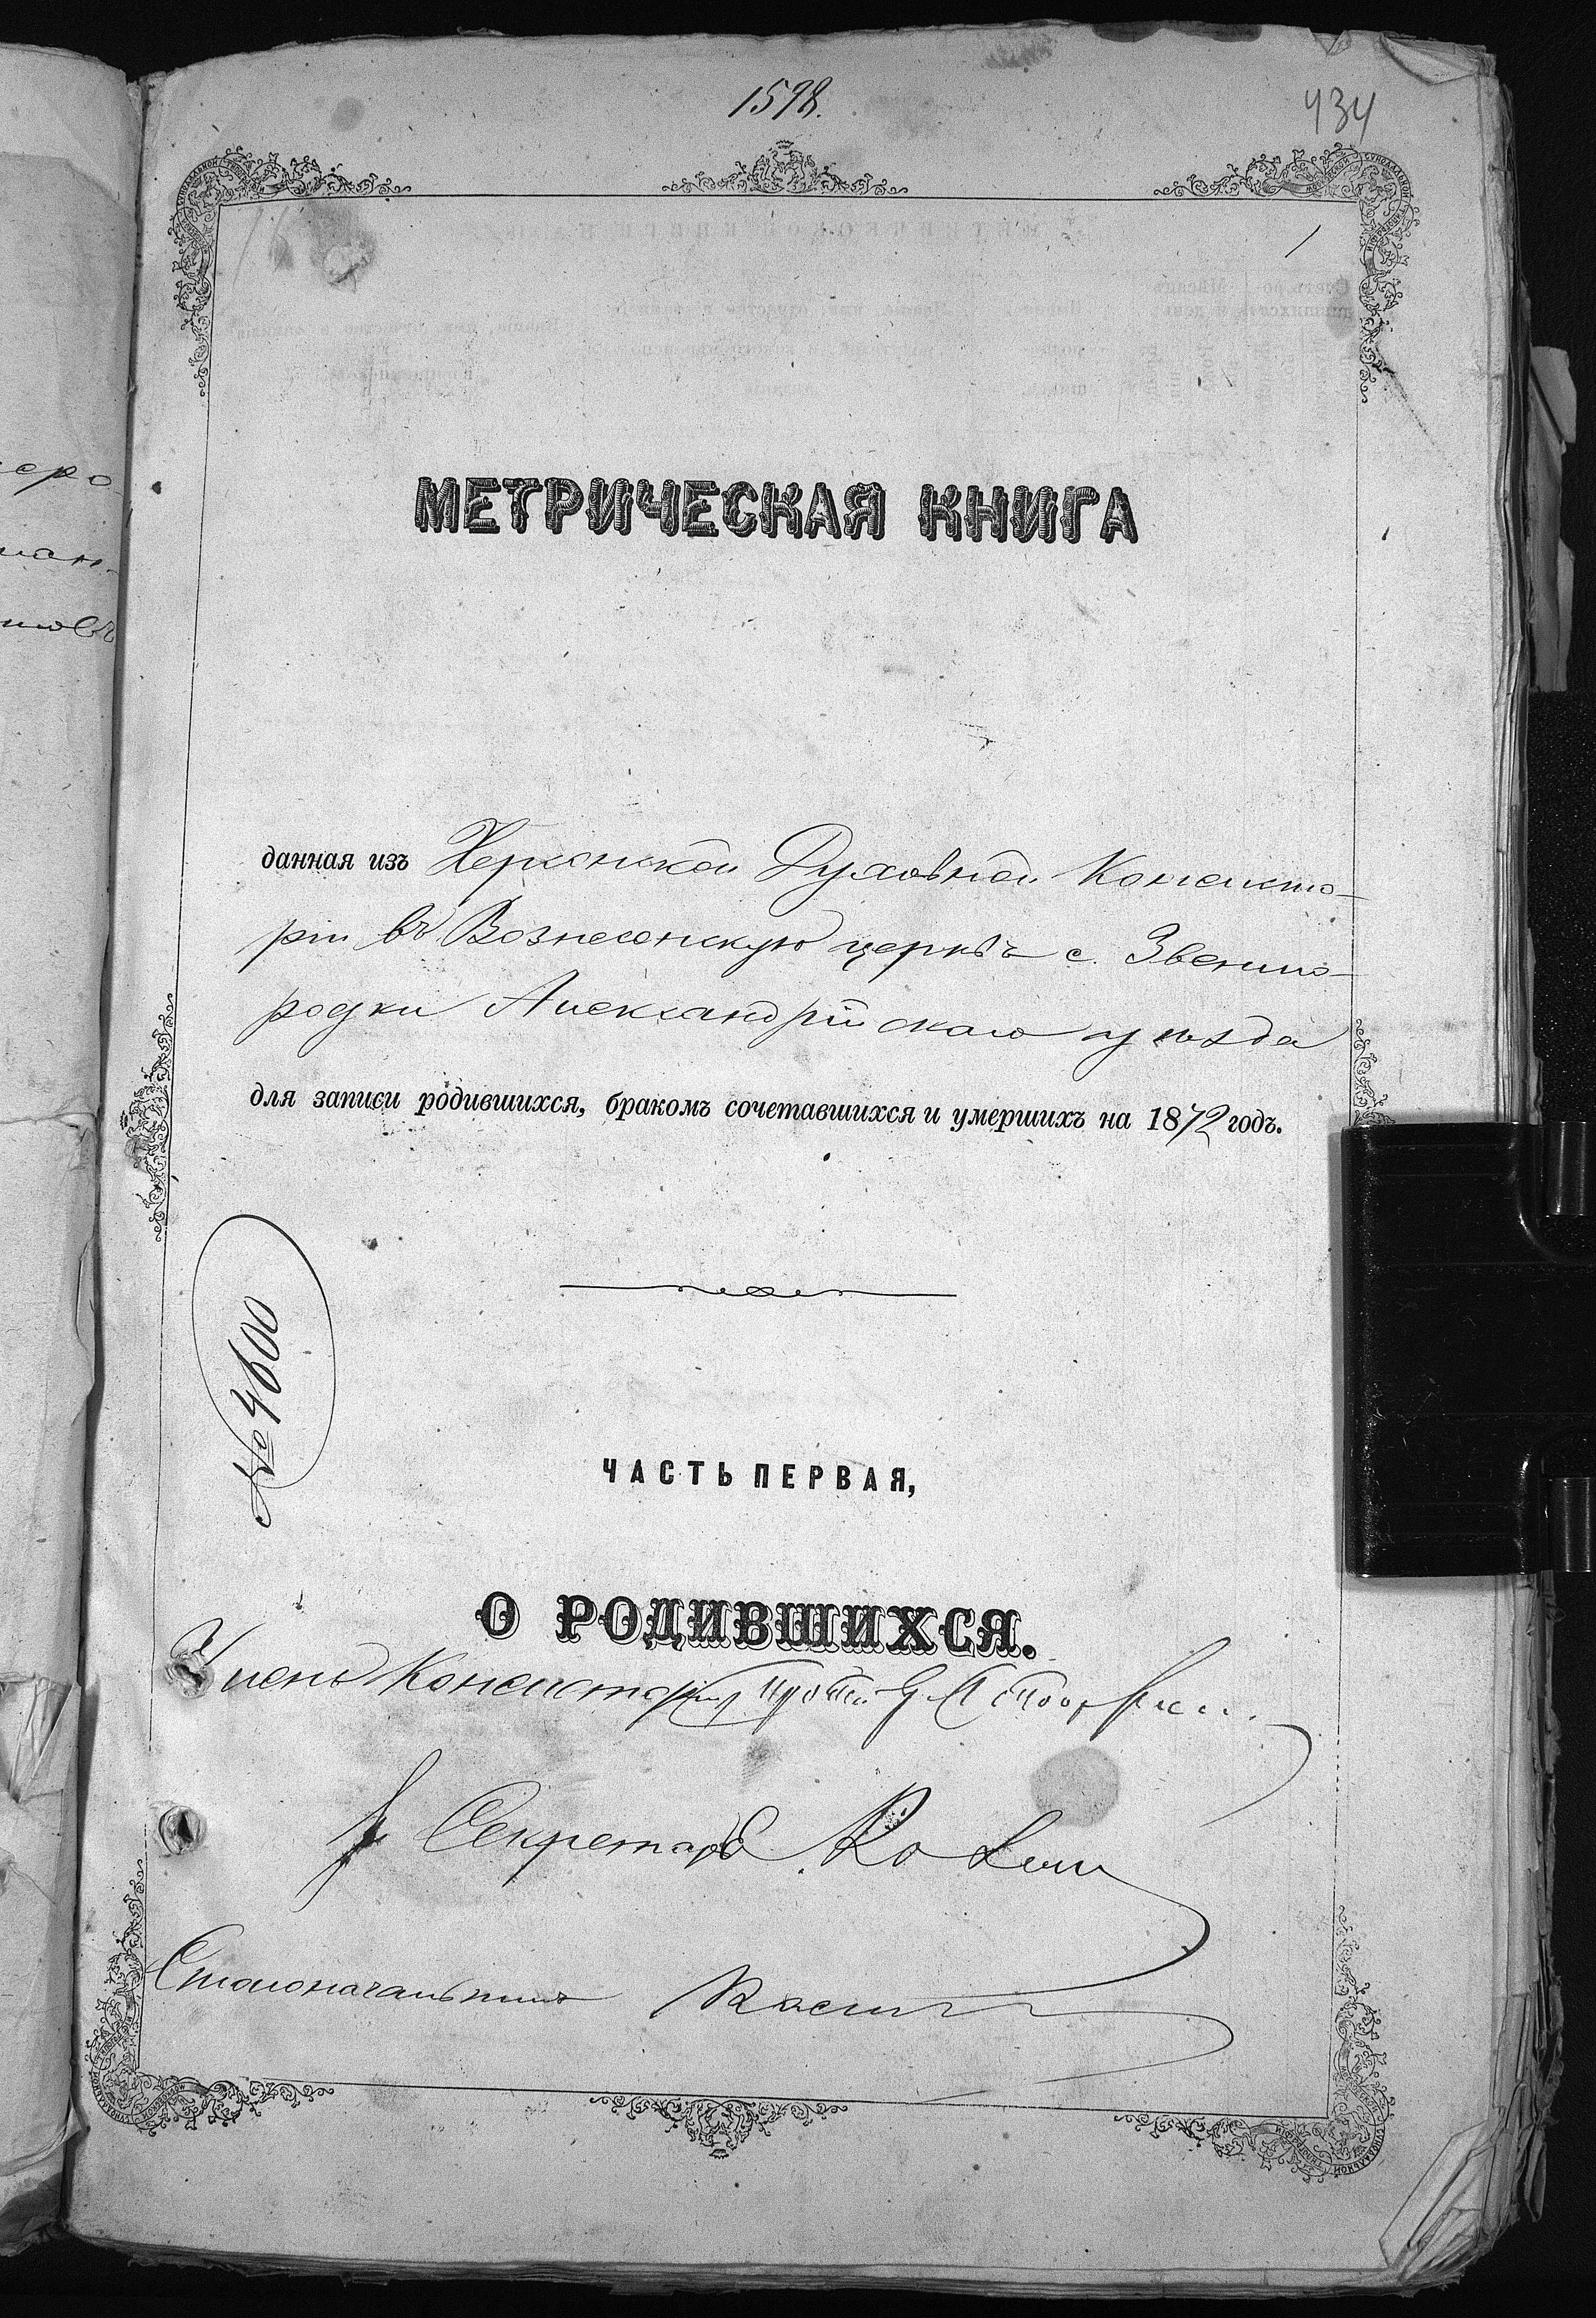 1598.
434
МЕТРИЧЕСКАЯ КНИГА
данная изъ Херсонской Духовной Консисто-
ріи въ Вознесенскую церквъ с. Звениго-
родки Александрійскаго уѣзда
для записи родившихся, бракомъ сочетавшихся и умершихъ на 1872 годъ.
№ 4600
ЧАСТЬ ПЕРВАЯ,
О РОДИВШИХСЯ.
Членъ Консисторіи,
Секретарь
Столоначальникъ